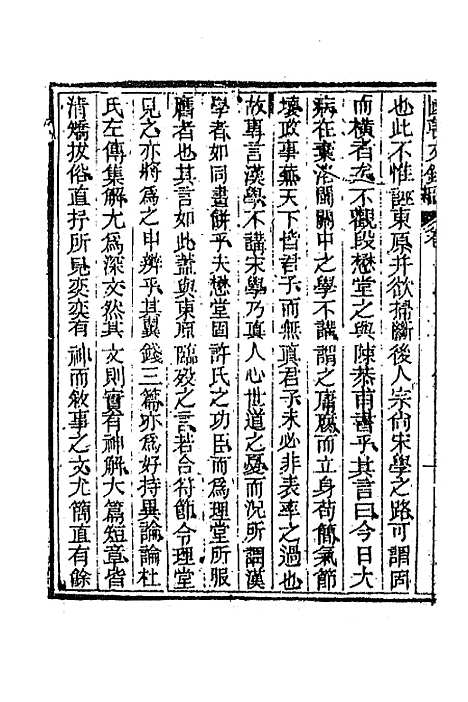 也此不惟誣東原并欲掃斷後人宗尚宋學之路可謂固
而橫者矣不觀段懋堂之與陳恭甫書乎其言曰今日大
病在棄洛閩關中之學不講謂之庸腐而立身苟簡氣節
壞政事蕪天下皆君子而無真君子未必非表率之過也
故專言漢學不講宋學乃真人心世道之憂而況所謂漢
學者如同畫餅乎夫懋堂固許氏之功臣而為理堂所服
膺者也其言如此蓋與東原臨歿之言若合符節令理堂
見之亦將為之申辨乎其翼錢三篇亦為好持異論論杜
氏左傳集解尤為深文然其文則實有神解大篇短章皆
清矯拔俗直抒所見奕奕有神而敘事之文尤簡直有餘